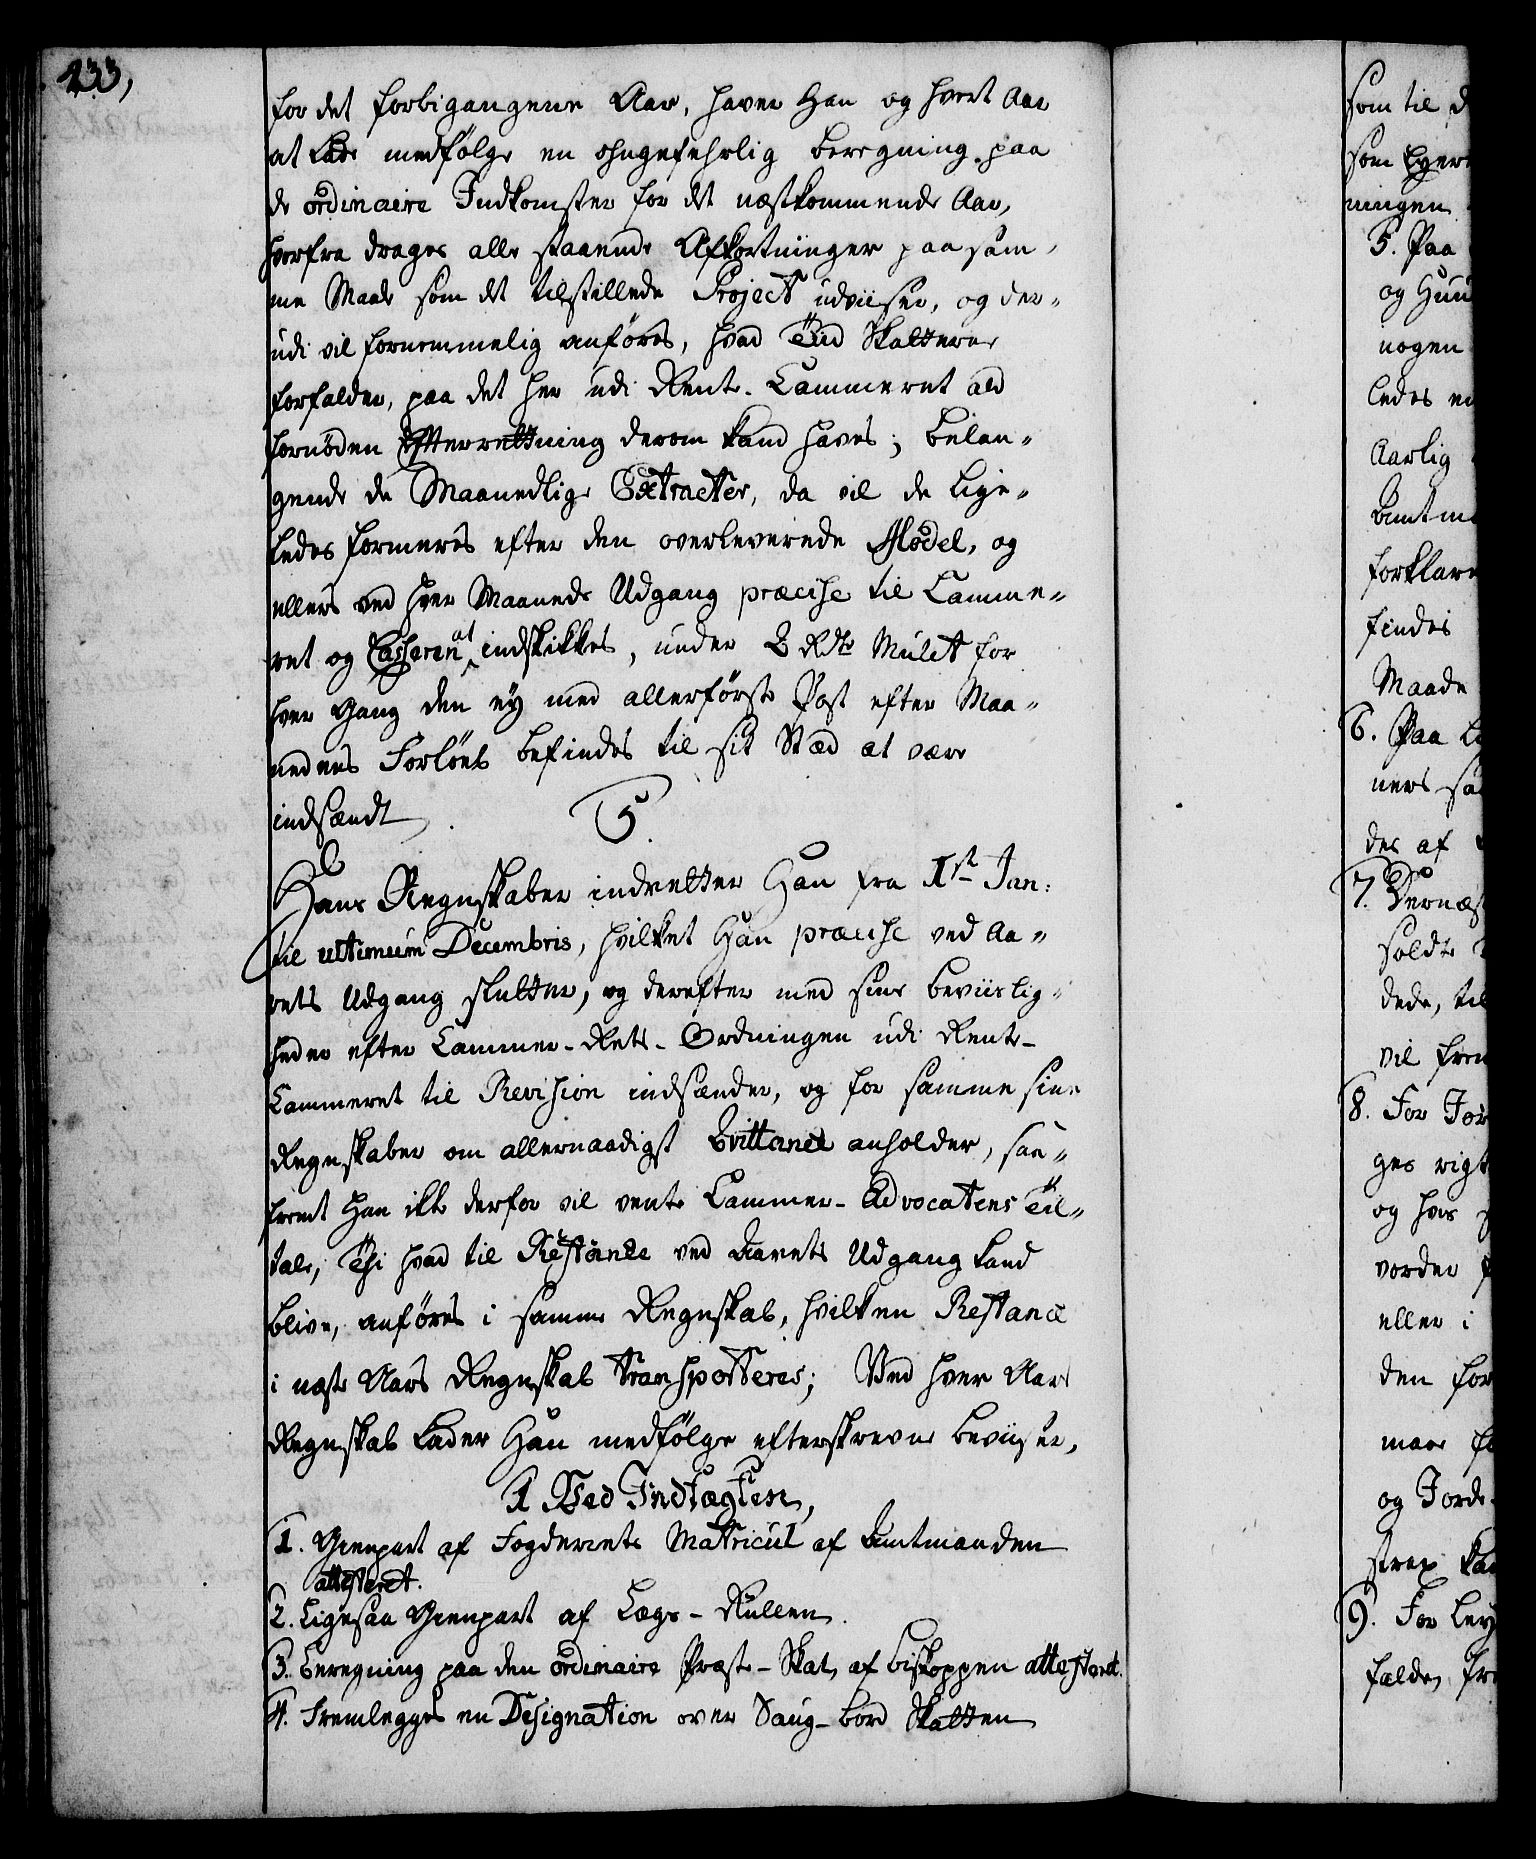 233,
for det forbigangene Aar, haver Han og hvert Aar
at Lade medfølge en ohngefehrlig beregning paa
de ordinaire Indkomster for det næstkommende Aar,
hvorfra drages alle staaende Afkortninger paa sam-
me Maade som det tilstillede Project udviiser, og der-
udi vil fornemmelig anføres, hvad Tiid Skatterne
forfalder, paa det her udi Rente-Cammeret ald
fornøden Efterrettning derom kand haves; belan-
gende de Maanedlige Extracter, da vil de lige-
ledes formeres efter den overleverede Model, og
ellers ved hver Maaneds Udgang præcise til Camme-
ret og Casseren at indskikkes, under 2 Rdr Mulct for
hver Gang den ey med allerførste Post efter Maa-
nedens Forløb befindes til sit Stæd at være
indsendt
5.
Hans Regnskaber indretter Han fra 1st Jan:
til ultimum Decembris, hvilket Han præcise ved Aa-
rets Udgang slutter, og derefter med sine beviislig-
heder efter Cammer-Rets-Ordningen udi Rente-
Cammeret til Revision indsænder, og for samme sine
Regnskaber om allernaadigst Qvittance anholder, saa-
fremt Han ikke derfor vil vente Cammer-Advocatens Til-
tale, Thi hvad til Restance ved Aarets Udgang kand
blive, anføres i samme Regnskab, hvilken Restance
i næste Aars Regnskab transporteres; Ved hver Aars
Regnskab Lader Han medfølge efterskrevne beviiser,
A Ved Indtægten,
1. Gienpart af Fogderiets Matricul af Amtmanden
attesteret.
2. Ligesaa Gienpart af Lægs-Rullen.
3. Beregning paa den ordinaire Præste-Skat, af biskoppen attesteret.
4. Fremlegges en Designation over Saug-bord Skatten
som til d
som Eger
ningen
5. Paa
og Huu
nogen
ledes en
Aarlig
Amtma
forklar
findes
Maade
6. Paa L
ners sa
des af
7. Dernæst
soldte
dede, til
vil frem
8. For Jor
ges rigt
og hvis
vorder
eller i
den for
maae
og Jorde-
strax kan
9. For Ley
falde, fre